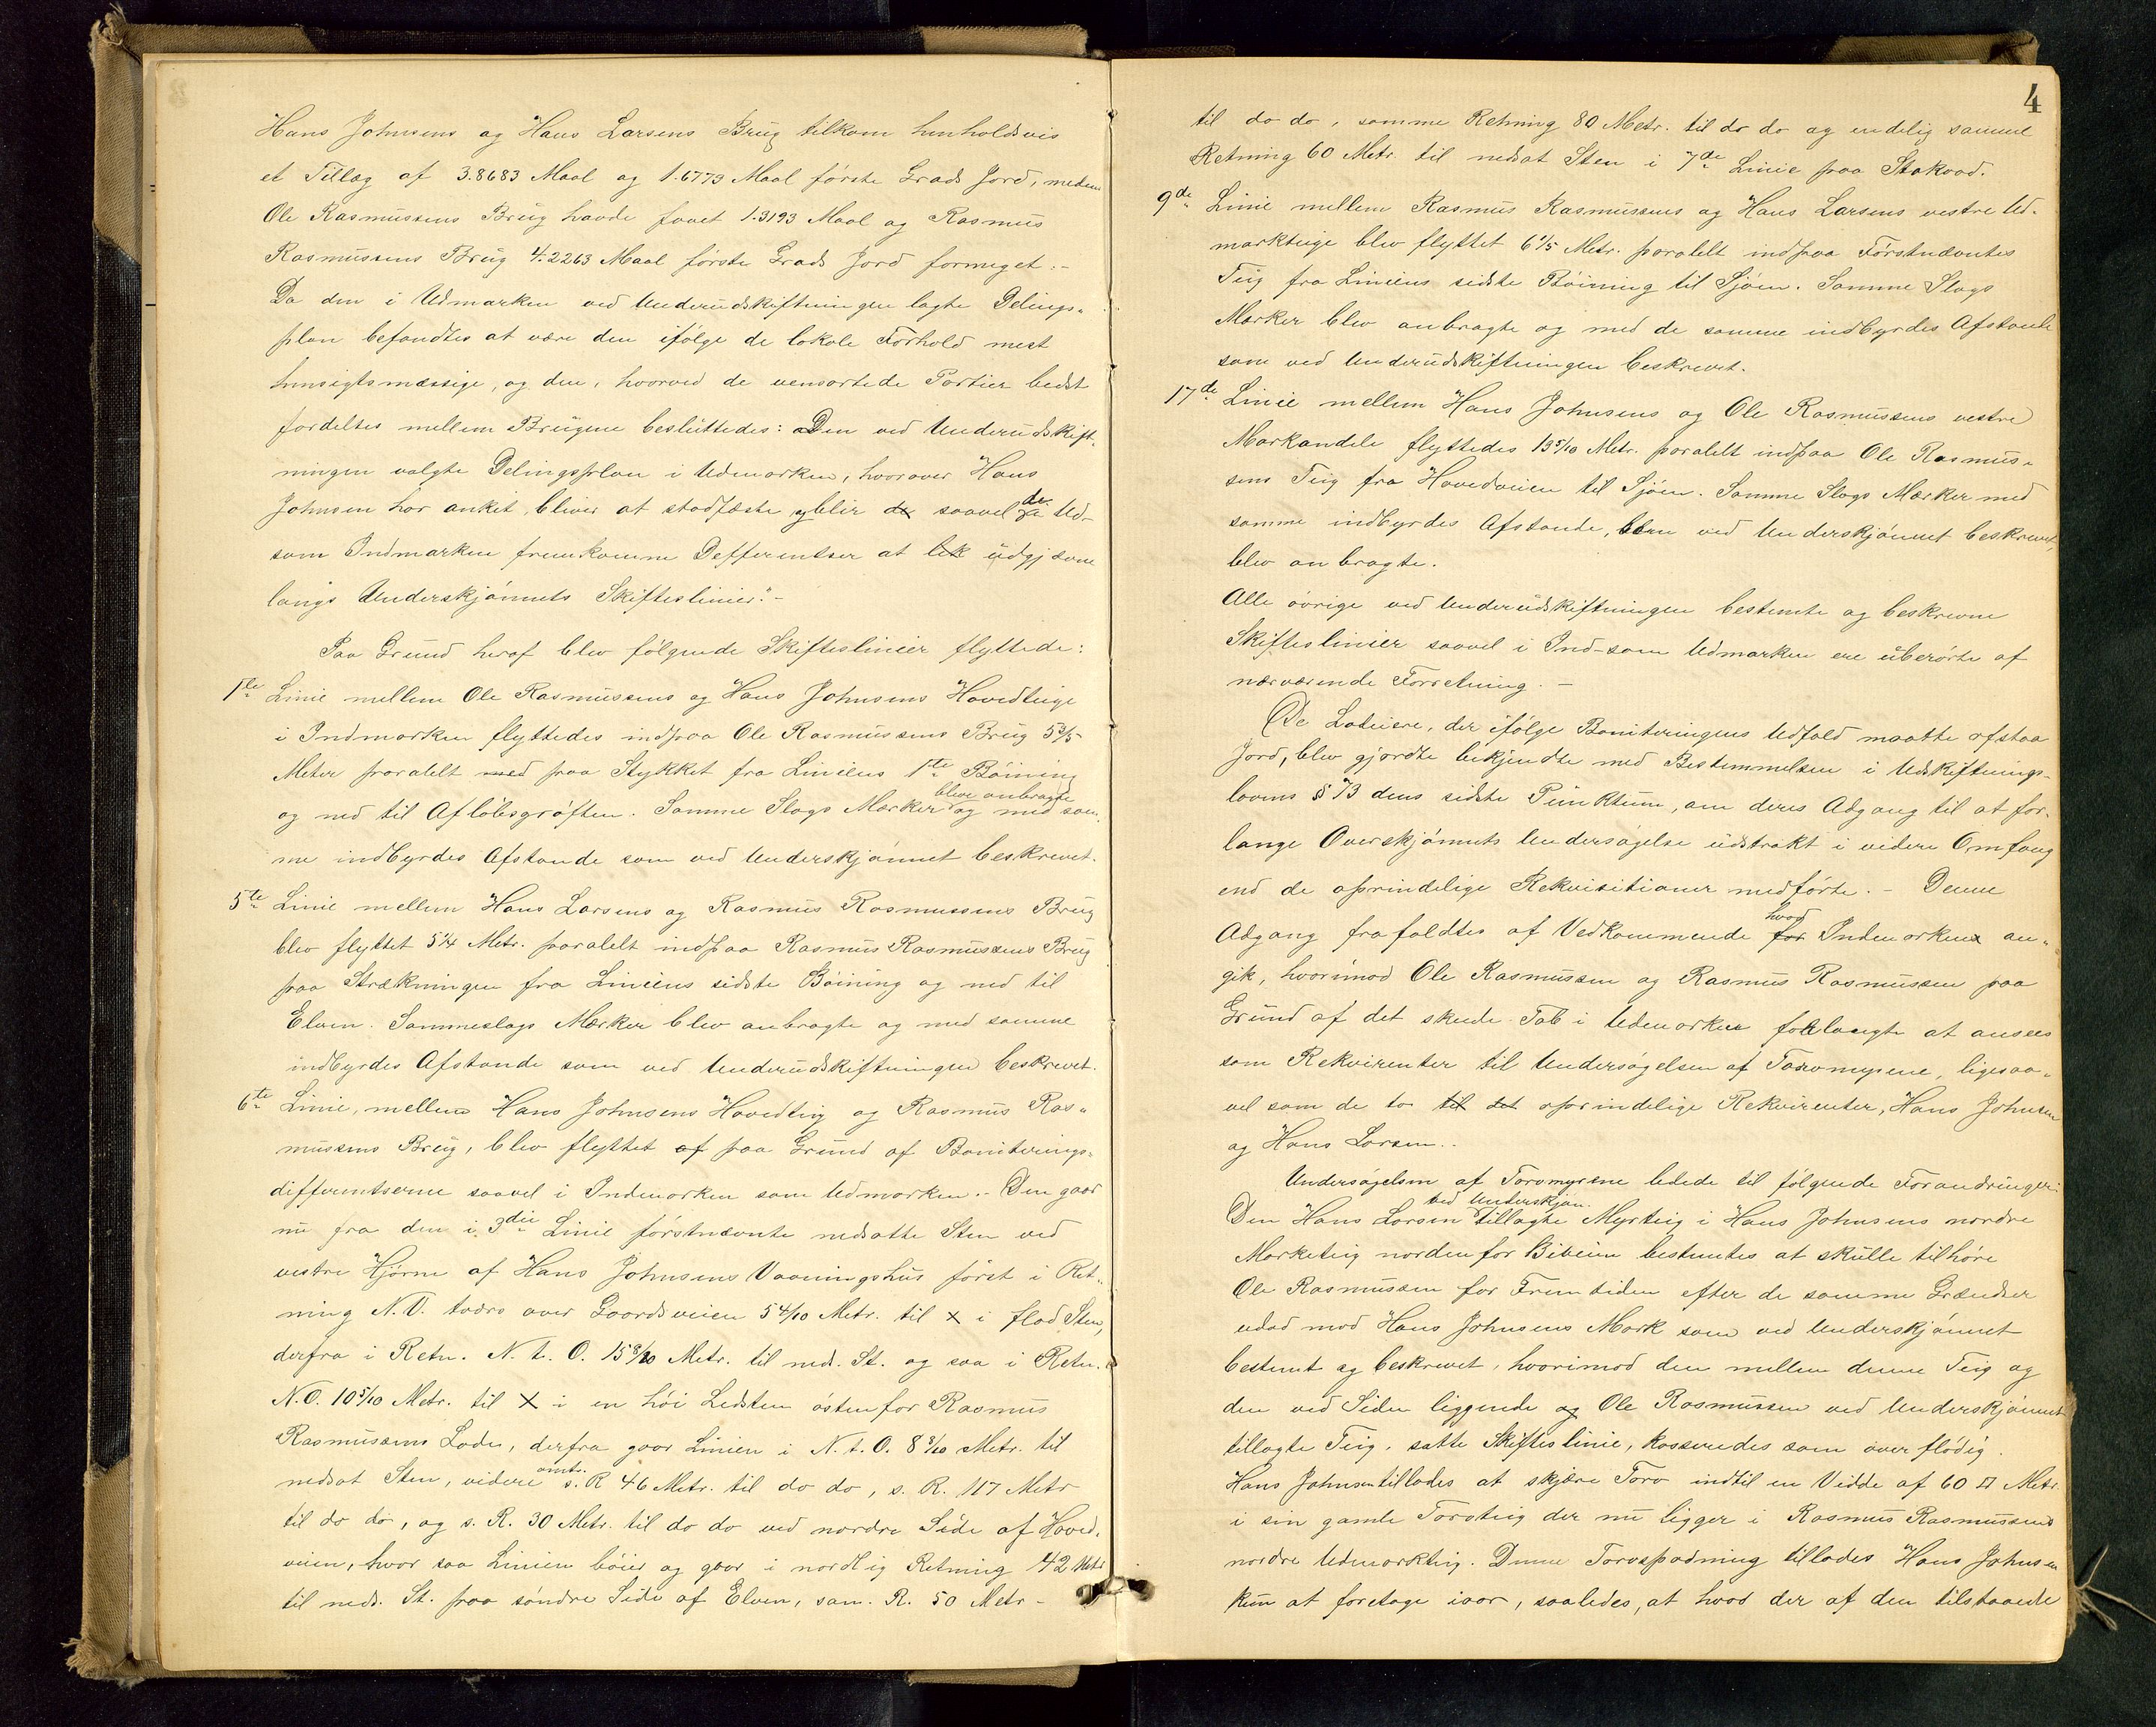 Hans Johnsens og Hans Larsens Brug tilkom henholdsvis
et Tillæg af 3.8683 Maal og 1.6773 Maal første Grads Jord, medens
Ole Rasmussens Brug havde faaet 1.3193 Maal og Rasmus
Rasmussens Brug 4.2263 Maal første Grads Jord formeget.-
Da den i Udmarken ved Underudskiftningen lagte Delings-
plan befandtes at være den ifølge de lokale Forhold mest
hensigtsmæssige, og den, hvorved de uensartede Partier bedst
fordeltes mellem Brugene besluttedes: Den ved Underudskift-
ningen valgte Delingsplan i Udmarken, hvorover Hans
Johnsen har anket, bliver at stadfæste og blir de saavel de i Ud-
som Indmarken fremkomne Defferentser at udgjævne
langs Underskjønnets Skifteslinier."-
Paa Grund heraf blev følgende Skifteslinier flyttede:
1ste Linie mellem Ole Rasmussens og Hans Johnsens Hovedteige
i Indmarken flyttedes indpaa Ole Rasmussens Brug 5 3/5
Meter paralelt med paa Stykket fra Liniens 1ste Bøining
og ned til Afløbsgrøften. Samme Slags Mærker blev anbragte og med sam-
me indbyrdes Afstande som ved Underskjønnet beskrevet.
5te Linie mellem Hans Larsens og Rasmus Rasmussens Brug
blev flyttet 5 1/4 Metr. paralelt indpaa Rasmus Rasmussens Brug
paa Strækningen fra Liniens sidste Bøining og ned til
Elven. Sammeslags Mærker blev anbragte og med samme
indbyrdes Afstande som ved Underudskiftningen beskrevet.
6te Linie, mellem Hans Johnsens Hovedteig og Rasmus Ras-
mussens Brug, blev flyttet af paa Grund af Boniterings-
differentserne saavel i Indmarken som Udmarken.- Den gaar
nu fra den i 3die Linie førstnævnte nedsatte Sten ved
vestre Hjørne af Hans Johnsens Vaaningshus først i Ret-
ning N.V. tværs over Gaardsveien 5 4/10 Metr. til X i flad Sten,
derfra i Retn. N. t. O. 15 8/10 Metr. til neds. St. og saa i Retn.
N.O. 10 5/10 Metr. til X i en høi Ledsten østenfor Rasmus
Rasmussens Lade, derfra gaar Linien i N. t. O. 8 8/10 Metr. til
nedsat Sten, videre omtr. s. R 46 Metr. til do do, s. R. 117 Metr
til do do, og s. R. 30 Metr. til do do ved nordre Side af Hoved-
veien, hvor saa Linien bøier og gaar i nordlig Retning 42 Metr
til neds. St. paa søndre Side af Elven, sam. R. 50 Metr -
4
til do do, samme Retning 80 Metr. til do do og endelig samme
Retning 60 Metr. til nedsat Sten i 7de Linie paa Stakvad.
9de Linie mellem Rasmus Rasmussens og Hans Larsens vestre Ud-
markteige blev flyttet 6 1/5 Metr. paralelt indpaa Førstnævntes
Teig fra Liniens sidste Bøining til Sjøen. Samme Slags
Mærker blev anbragte og med de samme indbyrdes Afstande
som ved Underudskiftningen beskrevet.
17de Linie mellem Hans Johnsens og Ole Rasmussens vestre
Markandele flyttedes 13 5/10 Metr. paralelt indpaa Ole Rasmus-
sens Teig fra Hovedveien til Sjøen. Samme Slags Mærker med
samme indbyrdes Afstande, som ved Underskjønnet beskrevet,
blev anbragte.
Alle øvrige ved Underudskiftningen bestemte og beskrevne
Skifteslinier saavel i Ind- som Udmarken ere uberørte af
nærværende Forretning.-
De Lodeiere, der ifølge Boniteringens Udfald maatte afstaa
Jord, blev gjordte bekjendte med Bestemmelsen i Udskiftnings-
lovens § 73 dens sidste Punktum, om deres Adgang til at for-
lange Overskjønnets Undersøgelse udstrakt i videre Omfang
end de oprindelige Rekvisitioner medførte.- Denne
Adgang frafaldtes af Vedkommende for hvad Indmarken an-
gik, hvorimod Ole Rasmussen og Rasmus Rasmussen paa
Grund af det skede Tab i Udmarken forlangte at ansees
som Rekvirenter til Undersøgelsen af Torvmyrene, ligesaa-
vel som de to til det oprindelige Rekvirenter, Hans Johnsen
og Hans Larsen..
Undersøgelsen af Torvmyrene ledede til følgende Forandringer:
Den Hans Larsen ved Underskjøn. tillagte Myrteig i Hans Johnsens nordre
Marketeig nordenfor Biveien bestemtes at skulle tilhøre
Ole Rasmussen for Fremtiden efter de samme Grændser
udad mod Hans Johnsens Mark som ved Underskjønnet
bestemt og beskrevet, hvorimod den mellem denne Teig og
den ved Siden liggende og Ole Rasmussen ved Underskjønnet
tillagte Teig, satte Skifteslinie, kasseredes som overflødig.
Hans Johnsen tillades at skjære Torv indtil en Vidde af 60 □ Metr.
i sin gamle Torvteig der nu ligger i Rasmus Rasmussens
nordre Udmarkteig. Denne Torvspadning tillades Hans Johnsen
kun at foretage iaar, saaledes, at hvad der af den tilstaaede